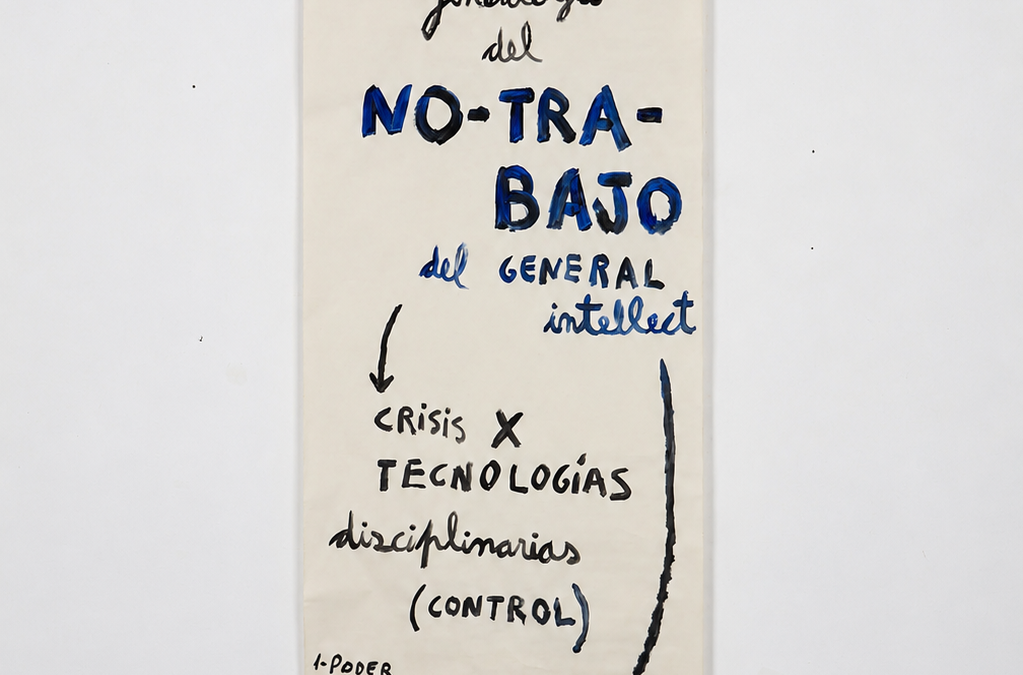 genealogía
del
NO-TRA-
BAJO
del GENERAL
intellect
CRISIS X
TECNOLOGÍAS
disciplinarias
(CONTROL)
1-PODER